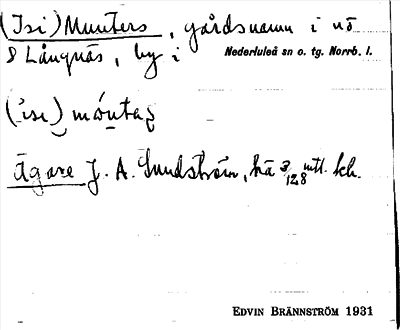 (Isi) Munters, gårdsnamn i nö
8 Långnäs, by i Nederluleå sn o. tg. Norrb. l.
(isi) móntaʂ
Ägare J. A. Sundström, hä 3/128 mtl. kh.
EDVIN BRÄNNSTRÖM 1931